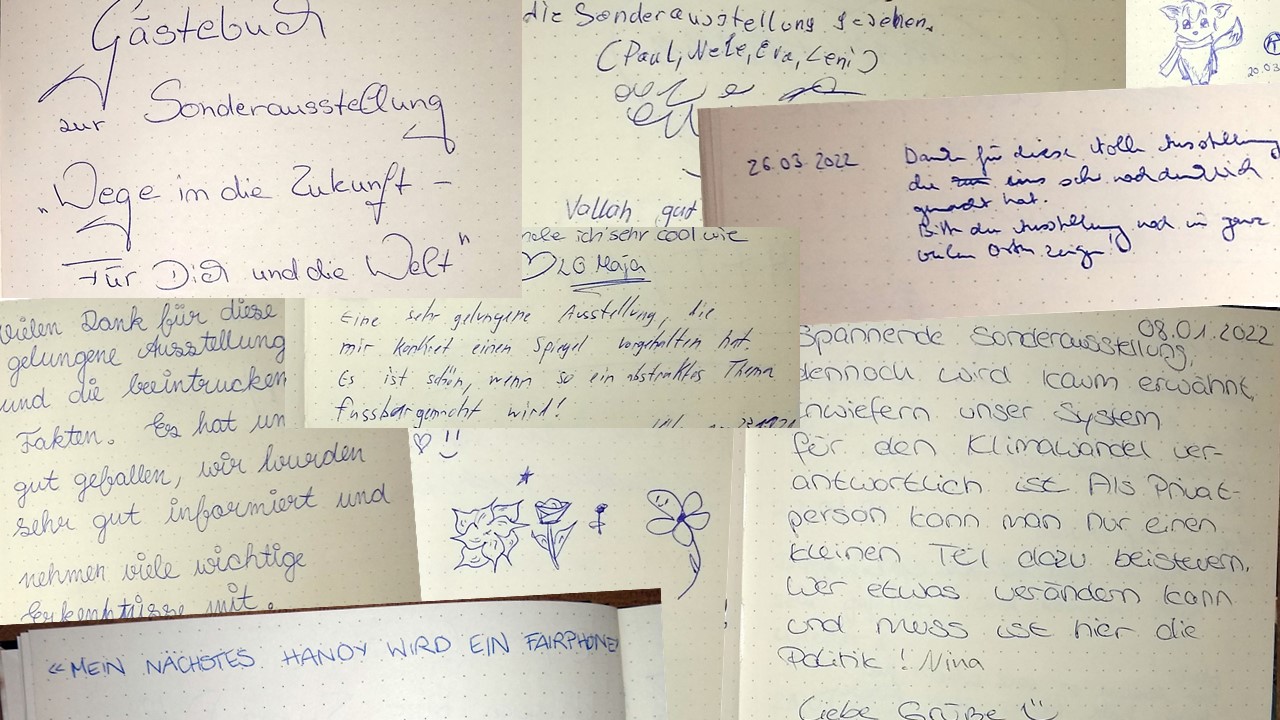 Gästebuch
zur Sonderausstellung
„Wege im die Zukunft –
Für Dich und die Welt"
die Sonderausstellung gesehen.
(Paul, Nele, Eva, Leni)
Vallah gut
ich sehr cool wie
LG Maja
20.03
26.03 2022
Danke für diese tolle Ausstellung
die uns sehr nachdenklich
gemacht hat.
Bitte die Ausstellung noch in ganz
vielen Orten zeigen!
Eine sehr gelungene Ausstellung, die
mir konkret einen Spiegel vorgehalten hat.
Es ist schön, wenn so ein abstraktes Thema
fussbar gemacht wird!
Vielen Dank für diese
gelungene Ausstellung
und die beeintrucken
Fakten. Es hat un
gut gefallen, wir wurden
sehr gut informiert und
nehmen viele wichtige
Erkenntnisse mit.
08.01.2022
Spannende Sonderausstellung,
dennoch wird kaum erwähnt,
inwiefern unser System
für den Klimawandel ver-
antwortlich ist. Als Privat-
person kann man nur einen
kleinen Teil dazu beisteuern,
wer etwas verändern kann
und muss ist hier die
Politik! Nina
Liebe Grüße
«MEIN NÄCHSTES HANDY WIRD EIN FAIRPHONE